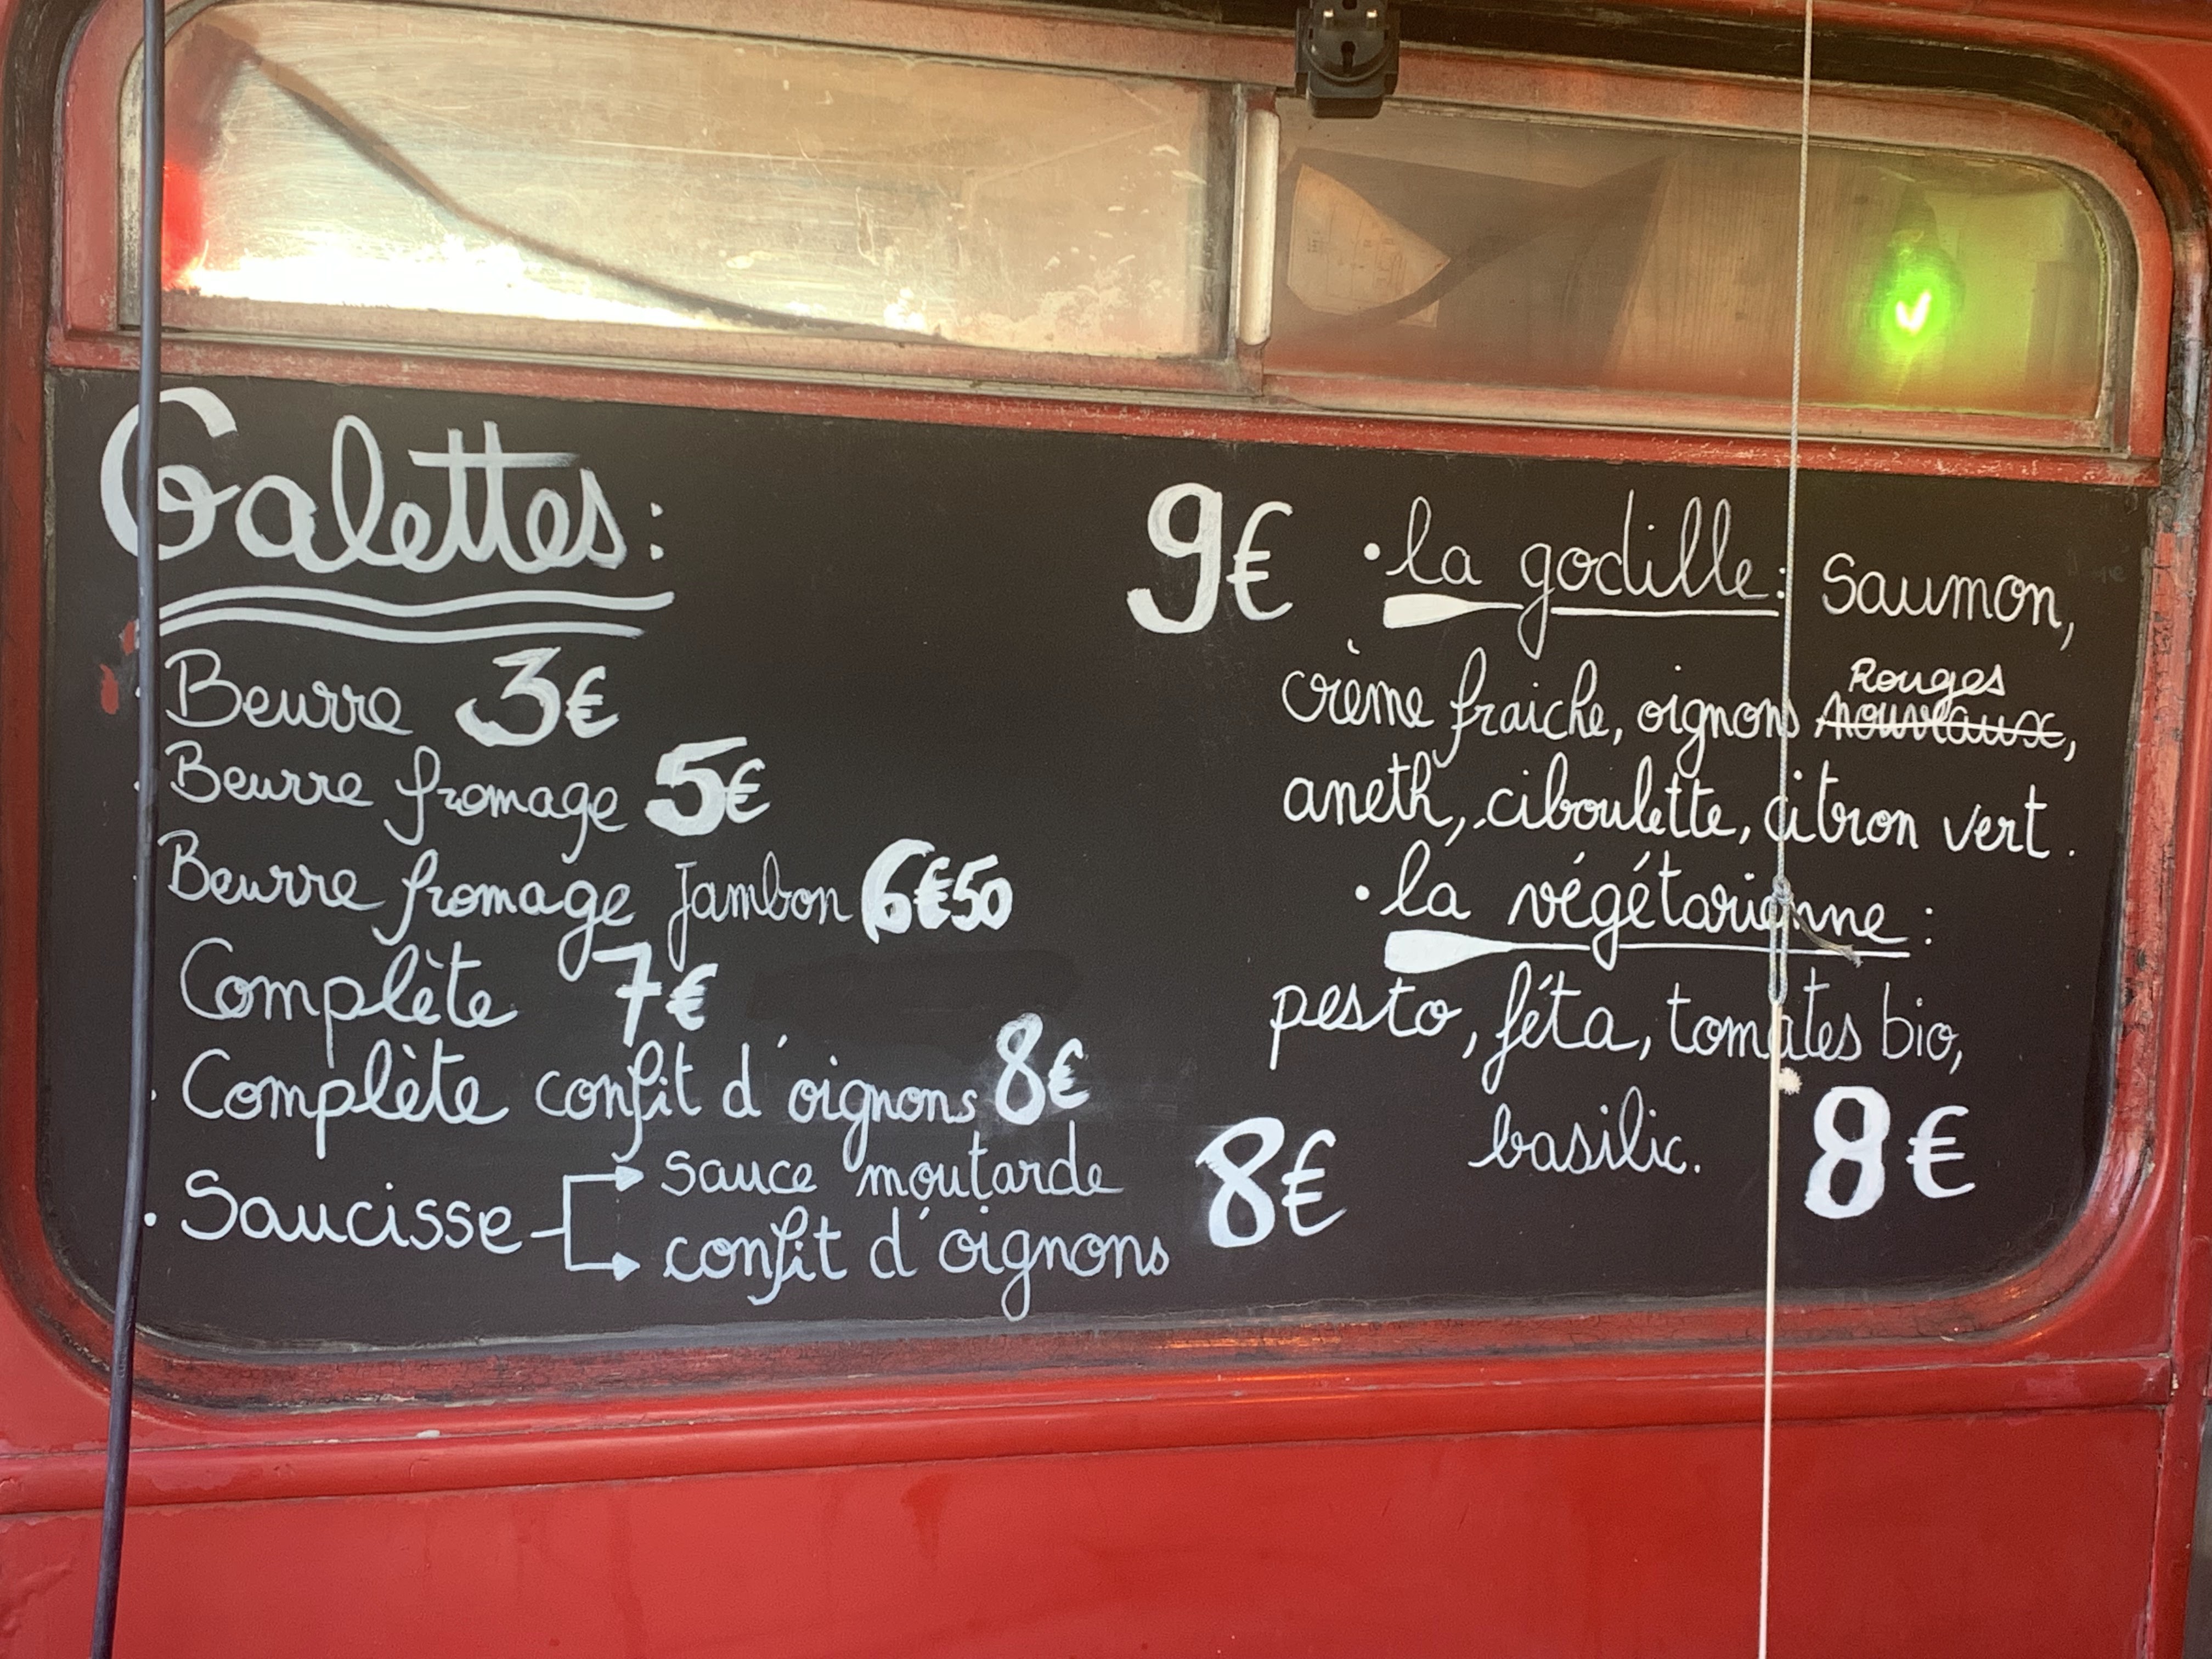 Galettes :
· Beurre 3€
· Beurre fromage 5€
· Beurre fromage Jambon 6€50
Complète 7€
· Complète confit d'oignons 8€
· Saucisse → sauce moutarde
→ confit d'oignons 8€
9€ • la godille : Saumon,
crème fraiche, oignons Rouges nouveaux,
aneth, ciboulette, citron vert.
• la végétarienne :
pesto, féta, tomates bio,
basilic. 8€